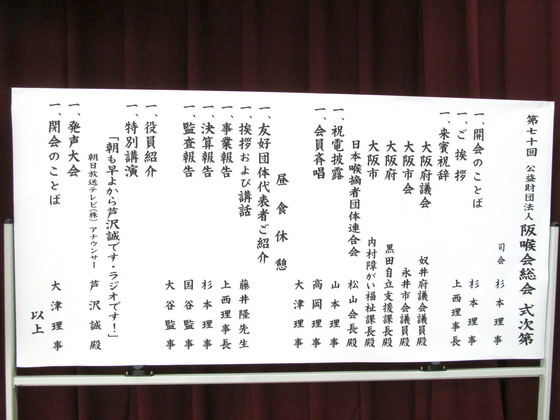 第七十回 公益財団法人 阪喉会総会 式次第
司会 杉本理事
一、開会のことば 杉本理事
一、ご挨拶 上西理事長
一、来賓祝辞
大阪府議会 奴井府議会議員殿
大阪市会 永井市会議員殿
大阪府 黒田自立支援課長殿
大阪市 内村障がい福祉課長殿
日本喉摘者団体連合会 松山会長殿
一、祝電披露 山本理事
一、会員斉唱 高岡理事
大津理事
昼食休憩
一、友好団体代表者ご紹介
一、挨拶および講話 藤井隆先生
一、事業報告 上西理事長
一、決算報告 杉本理事
一、監査報告 国谷監事
大谷監事
一、役員紹介
一、特別講演
「朝も早よから芦沢誠です・ラジオです!」
朝日放送テレビ(株)アナウンサー 芦沢誠殿
一、発声大会
一、閉会のことば 大津理事
以上